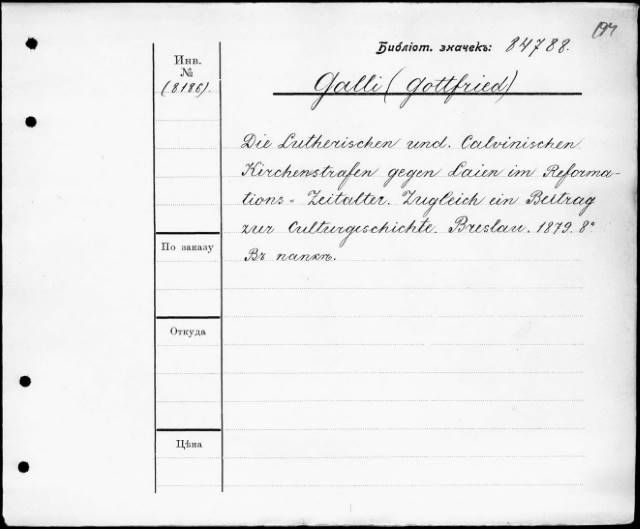 Библіот. значекъ: 84788.
Инв.
№
(8186).
Galli (Gottfried)
Die Lutherischen und Calvinischen
Kirchenstrafen gegen Laien im Reforma-
tions-Zeitalter. Zugleich ein Beitrag
zur Culturgeschichte. Breslau. 1879. 8°
Въ папкѣ.
По заказу
Откуда
Цѣна